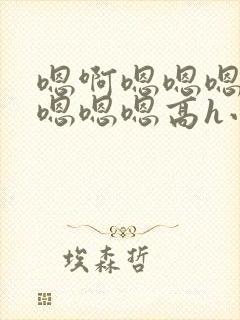 嗯啊嗯嗯嗯
嗯嗯嗯高h
埃森哲